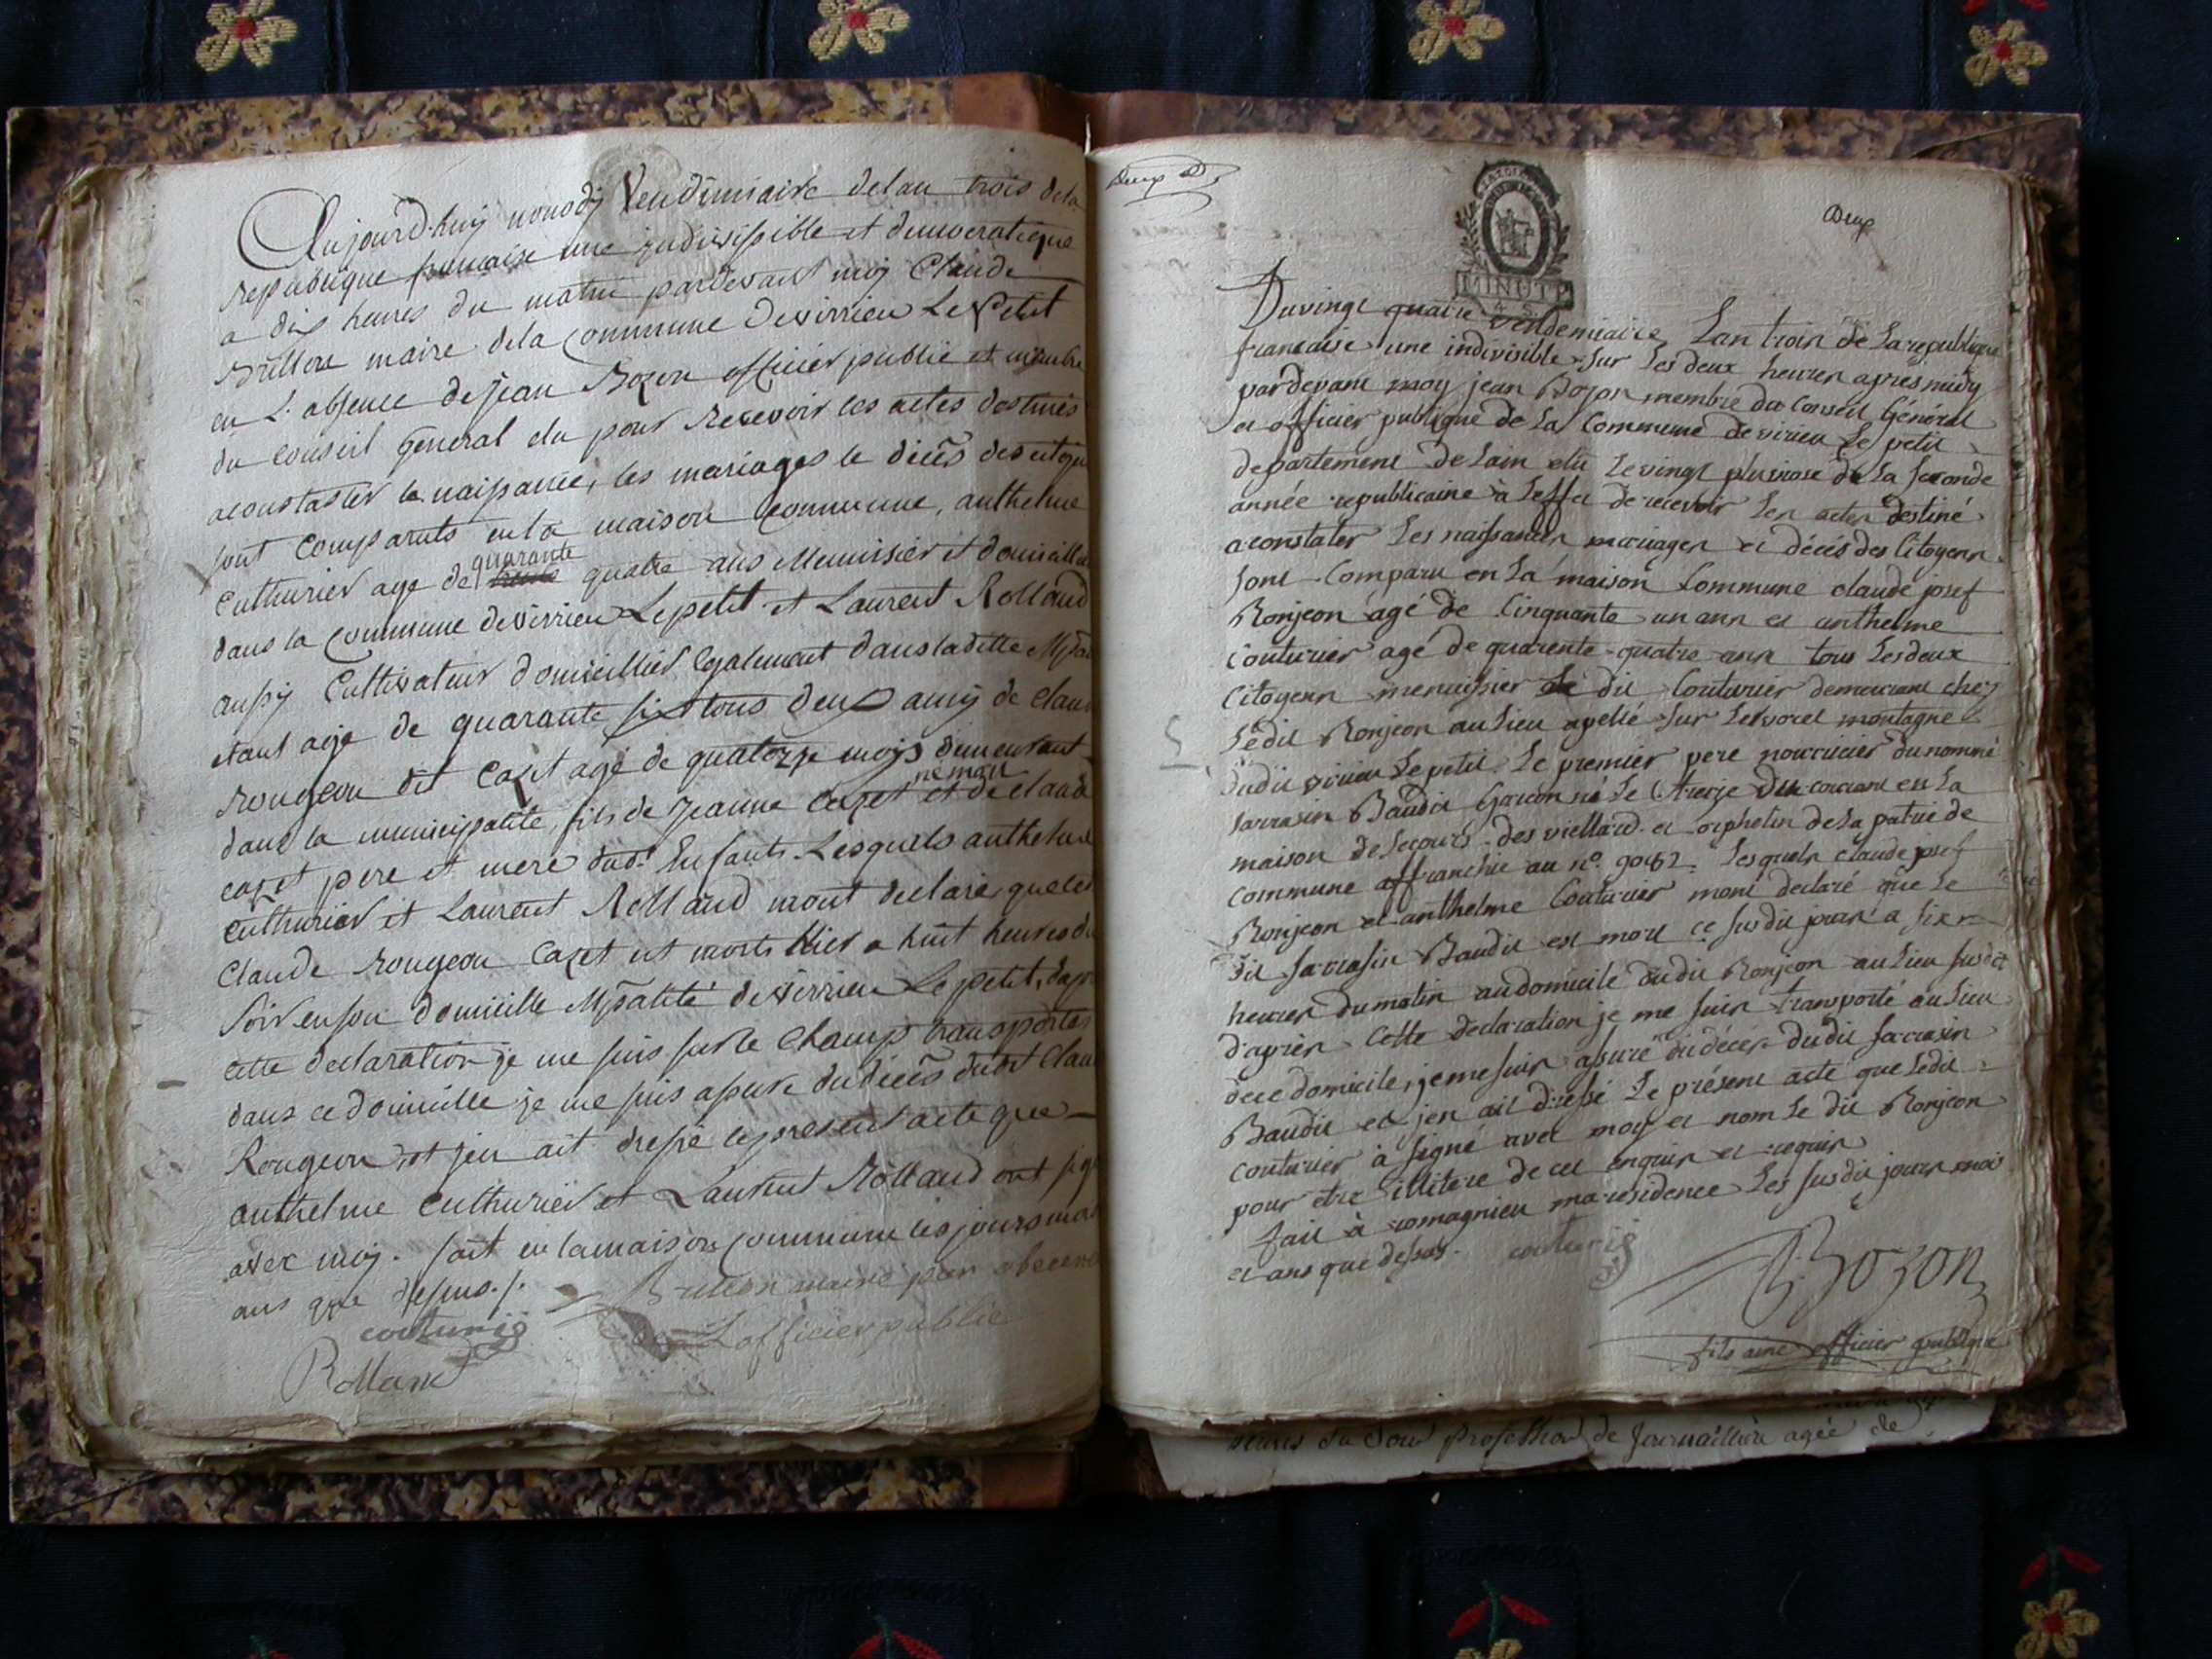 Aujourd.huy nonody Vendemiaire delan trois dela
Republique francaise une indivissible et democratique
a dix heures du matin pardevant moy Claude
maire dela Commune devirrieu Le Petit
en L. absence de Jean Bozon officier public et membre
du Conseil general elu pour recevoir les actes destinés
aconstater la naissance, les mariages le decès des citoyen
sont Comparuts en la maison Commune, anthelme
Cuthurier age de quarante quatre ans Menuisier et domicillie
dans la Commune devirrieu Le petit et Laurent Rolland
aussy Cultivateur domicillier Egalement dans laditte
etant age de quarante six tous deux amy de Claude
Rougeon dit Cazet agé de quatorze mois demeurant
dans la municipalité, fils de Jeanne Cazet et de claude
cazet pere et mere dudt Enfants. Lesquels anthelme
Cuthurier et Laurent Rolland mont declaré, que led
Claude Rougeon Cazet est morts hier a huit heures du
Soir en son domicille Mpalité devirrieu Le petit, dapr
cette declaration je me suis sur le Champ transporter
dans ce domicille je me suis assure du decès dudt Clau
Rougeon, et jen ait dressé le present acte que
anthelme Cuthurier et Laurent Rolland ont signé
avec moy. fait en la maison Commune les jours mois
ans que dessus./.
maire pour absence
couturié
de L'officier public
Rolland
Deux
MINUTE
Deux
Du vingt quatre vendemiaire Lan trois de La republique
francaise une indivisible sur Les deux heures apres midy
pardevant moy jean Bozon membre du Conseil Général
et officier publique de La Commune devirieu Le petit
departement de Lain elu Le vingt pluviose de La seconde
année republicaine à Leffet de recevoir Les actes destiné
aconstater Les naissances mariages et décès des Citoyens
sont Comparu en La maison Commune claude josef
Ronjeon agé de Cinquante un ans et anthelme
Couturier agé de quarente quatre ans tous Les deux
Citoyens menuisier Le dit Couturier demeurant chez
Ledit Ronjeon au Lieu apellé sur montagne
dudit virieu Le petit. Le premier pere nourricier du nommé
sarrasin Baudit Garcon né Le treize du courant en La
maison de Secours des viellard et orphelin de La patrie de
Commune affranchie au n°. Lesquels claude josef
Ronjeon et anthelme Couturier mont declaré que Le
dit sarrasin Baudit est mort ce susdit jour a six
heures du matin au domicile dudit Ronjeon au Lieu susdit
d'après Cette declaration je me suis transporté au Lieu
de ce domicile, je me suis assuré du décès dudit sarrasin
Baudit et jen ait dressé Le présent acte que Ledit
Couturier à signé avec moy et nom Le dit Ronjeon
pour etre illitere de cet enquis et requis
fait à romagnieu ma residence Les susdit jours mois
et ans que dessus.
couturié
Bozon
fils ainé officier publique
heures du de agée de